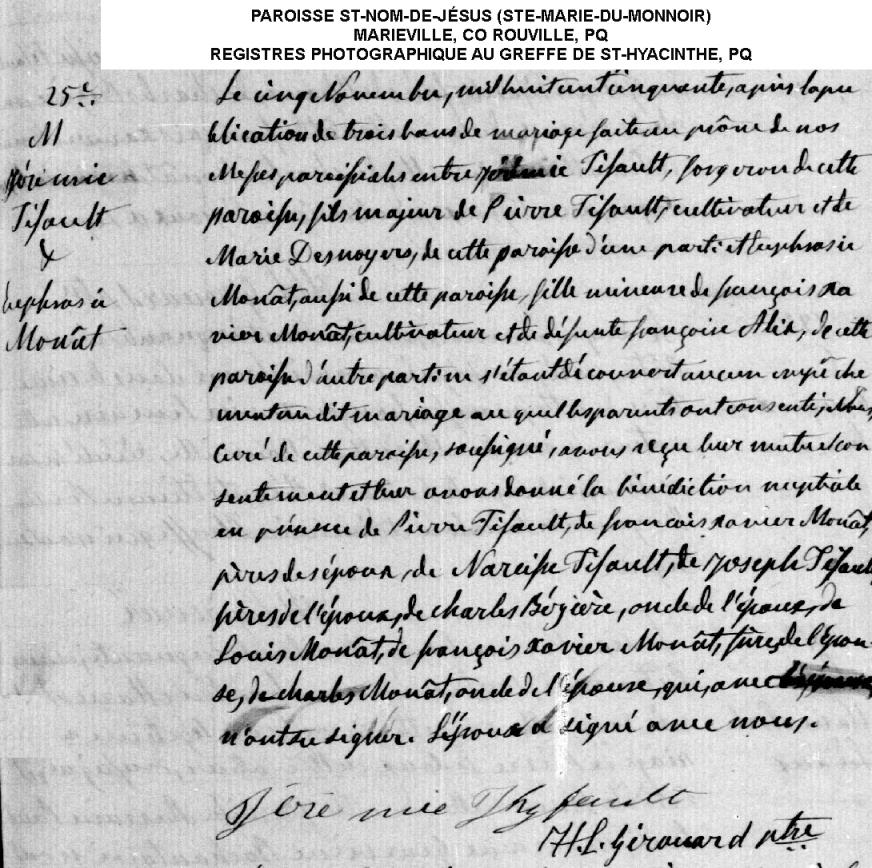 PAROISSE ST-NOM-DE-JÉSUS (STE-MARIE-DU-MONNOIR)
MARIEVILLE, CO ROUVILLE, PQ
REGISTRES PHOTOGRAPHIQUE AU GREFFE DE ST-HYACINTHE, PQ
25e
M
Jérémie
Tifault
&
Euphrosie
Monât
Le cinq Novembre, mil huit cent cinquante, après la pu
blication de trois bans de mariage faite au prône de nos
Messes paroissiales entre Jérémie Tifault, forgeron de cette
paroisse, fils majeur de Pierre Tifault, cultivateur et de
Marie Desnoyers, de cette paroisse d'une part et Euphrosie
Monât, aussi de cette paroisse, fille mineure de françois xa
vier Monât, cultivateur et de défunte françoise Alix, de cette
paroisse d'autre part; ne s'étant découvert aucun empêche
ment au dit mariage au quel les parents ont consenti, Nous,
Curé de cette paroisse, soussigné, avons reçu leur mutuel con
sentement et leur avons donné la bénédiction nuptiale
en présence de Pierre Tifault, de françois xavier Monât,
pères des époux, de Narcisse Tifault, de Joseph Tifault
frères de l'époux, de charles Bézière, oncle de l'époux, de
Louis Monât, de françois xavier Monât, frères de l'épou-
se, de charles Monât, oncle de l'épouse, qui, avec
n'ont su signer. L'époux a signé avec nous.
Jérémie Thyfault
H. L. Girouard ptre